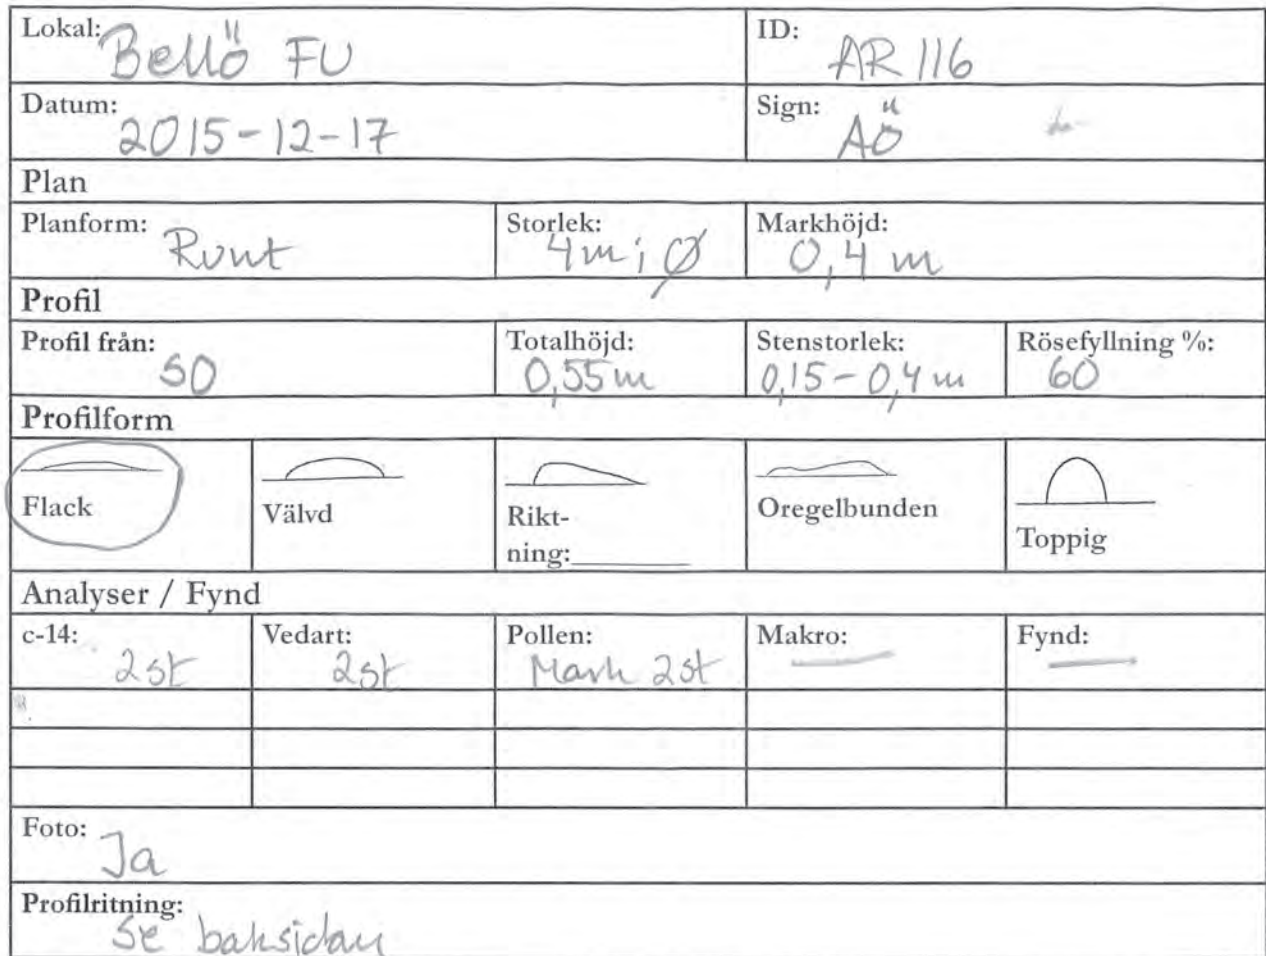 Lokal: Bellö FU
ID: AR 116
Datum: 2015-12-17
Sign: AÖ
Plan
Planform: Runt
Storlek: 4m i Ø
Markhöjd: 0,4 m
Profil
Profil från: SO
Totalhöjd: 0,55m
Stenstorlek: 0,15-0,4 m
Rösefyllning %: 60
Profilform
Flack
Välvd
Rikt-
ning:
Oregelbunden
Toppig
Analyser / Fynd
c-14: 2st
Vedart: 2st
Pollen: Mark 2st
Makro: —
Fynd: —
Foto: Ja
Profilritning:
Se baksidan